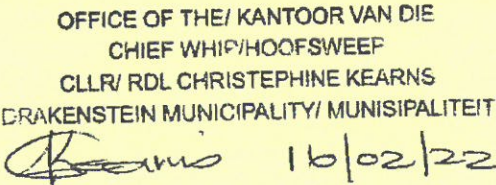 OFFICE OF THE/ KANTOOR VAN DIE
CHIEF WHIP/HOOFSWEEP
CLLR/ RDL CHRISTEPHINE KEARNS
DRAKENSTEIN MUNICIPALITY/ MUNISIPALITEIT
CKearns 16/02/22